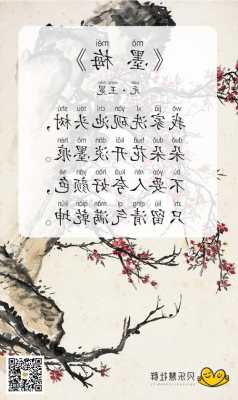 mò méi
《墨·梅》
yuán wáng miǎn
元·王冕
wǒ jiā xǐ yàn chí tóu shù
我家洗砚池头树，
duǒ duǒ huā kāi dàn mò hén
朵朵花开淡墨痕。
bú yào rén kuā hǎo yán sè
不要人夸好颜色，
zhǐ liú qīng qì mǎn qián kūn
只留清气满乾坤。